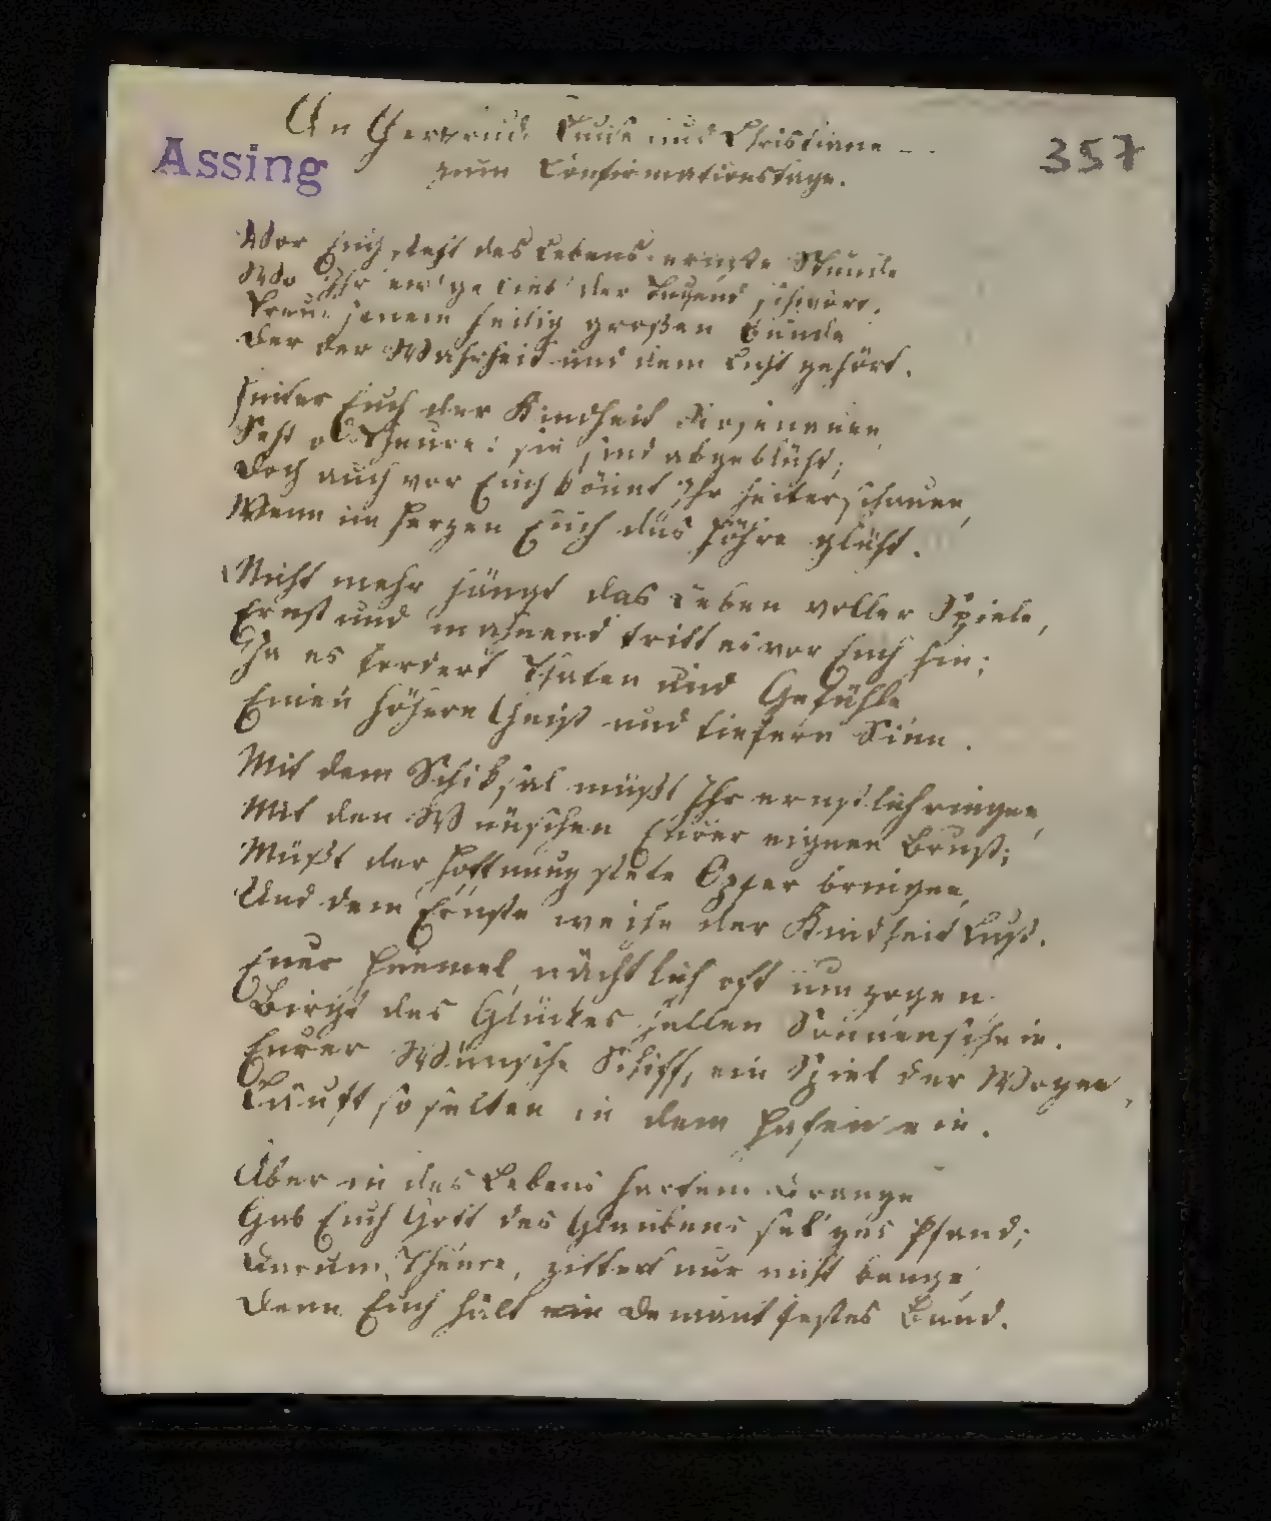 An Gertrud, Luise und Christiane –
Assing
357
zum Confirmationstage.
Vor Euch steht des Lebens ernste Stunde
Wo Ihr ew'ge Lieb' der Tugend schwört.
Treu jenem heilig großen Bunde
Der der Wahrheit und dem Licht gehört.
Hinter Euch der Kindheit
Seht o Theure! sie sind abgeblüht;
Doch auch vor Euch könnt Ihr heiter schauen,
Wenn im Herzen Euch das Höh're glüht.
Nicht mehr hängt das Leben voller Spiele,
Ernst und mahnend tritt es vor Euch hin;
Ja es fordert Thaten und Gefühle
Einen höhern Geist und tiefern Sinn.
Mit dem Schiksal müßt Ihr ernstlich ringen,
Mit den Wünschen Eurer eignen Brust;
Müßt der Hoffnung stete Opfer bringen,
Und dem Ernste weihn der Kindheit Lust.
Euer Himmel, nächtlich oft umzogen
Birgt des Glückes hellen Sonnenschein.
Eurer Wünsche Schiff, ein Spiel der Wogen,
Läuft so selten in dem Hafen ein.
Aber in des Lebens hartem Drange
Gab Euch Gott des Glaubens sel'ges Pfand;
Darum, Theure, zittert nur nicht bange,
Denn Euch hält ein Demantfestes Band.